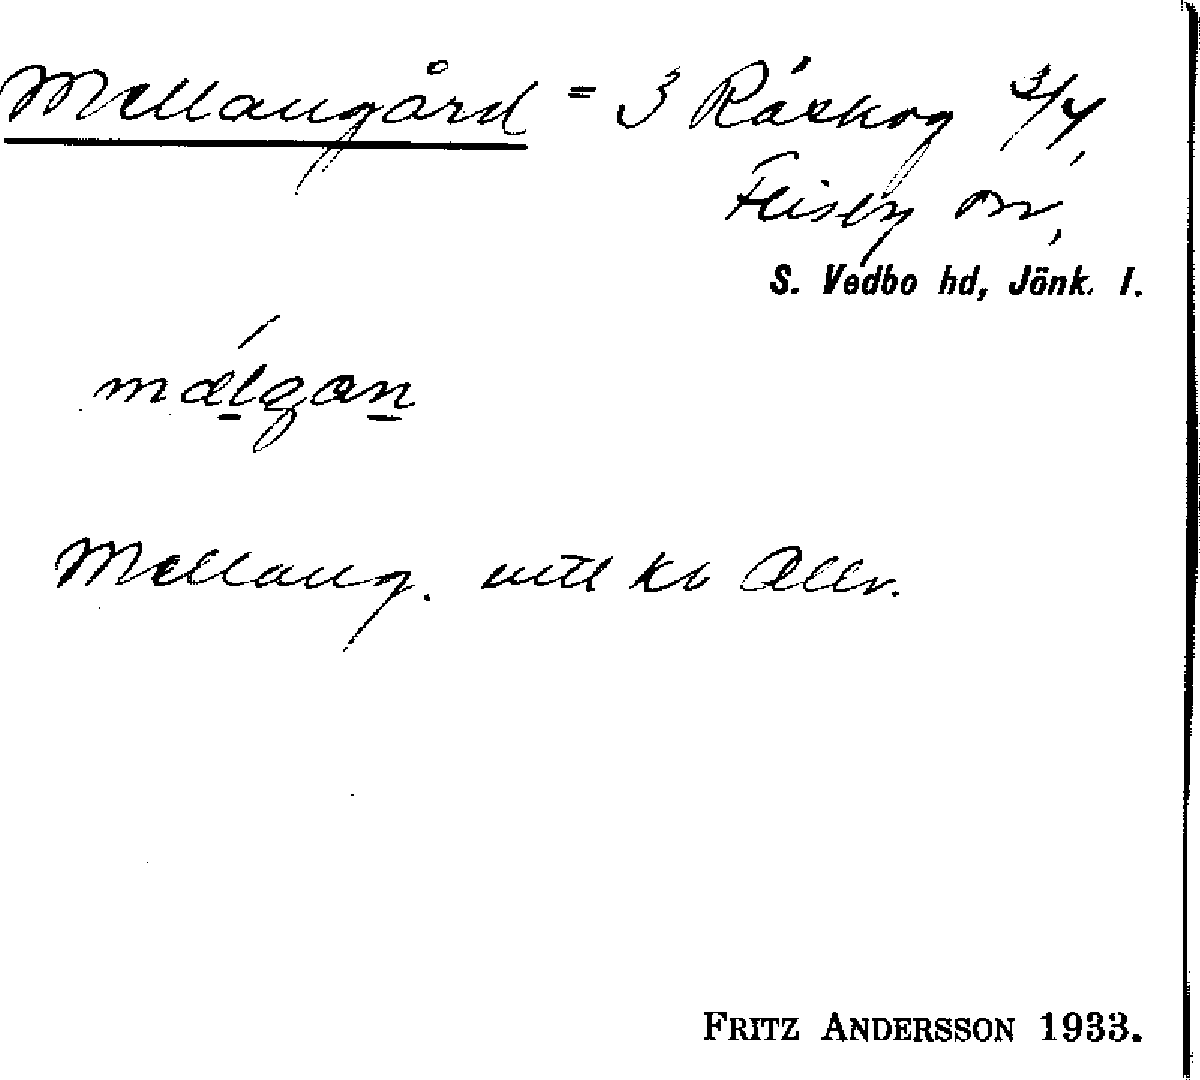 Mellangård = 3 Råskog 3/4,
Flisby sn,
S. Vedbo hd, Jönk. l.
mælgan
Mellang. uttl kb Allr.
FRITZ ANDERSSON 1933.